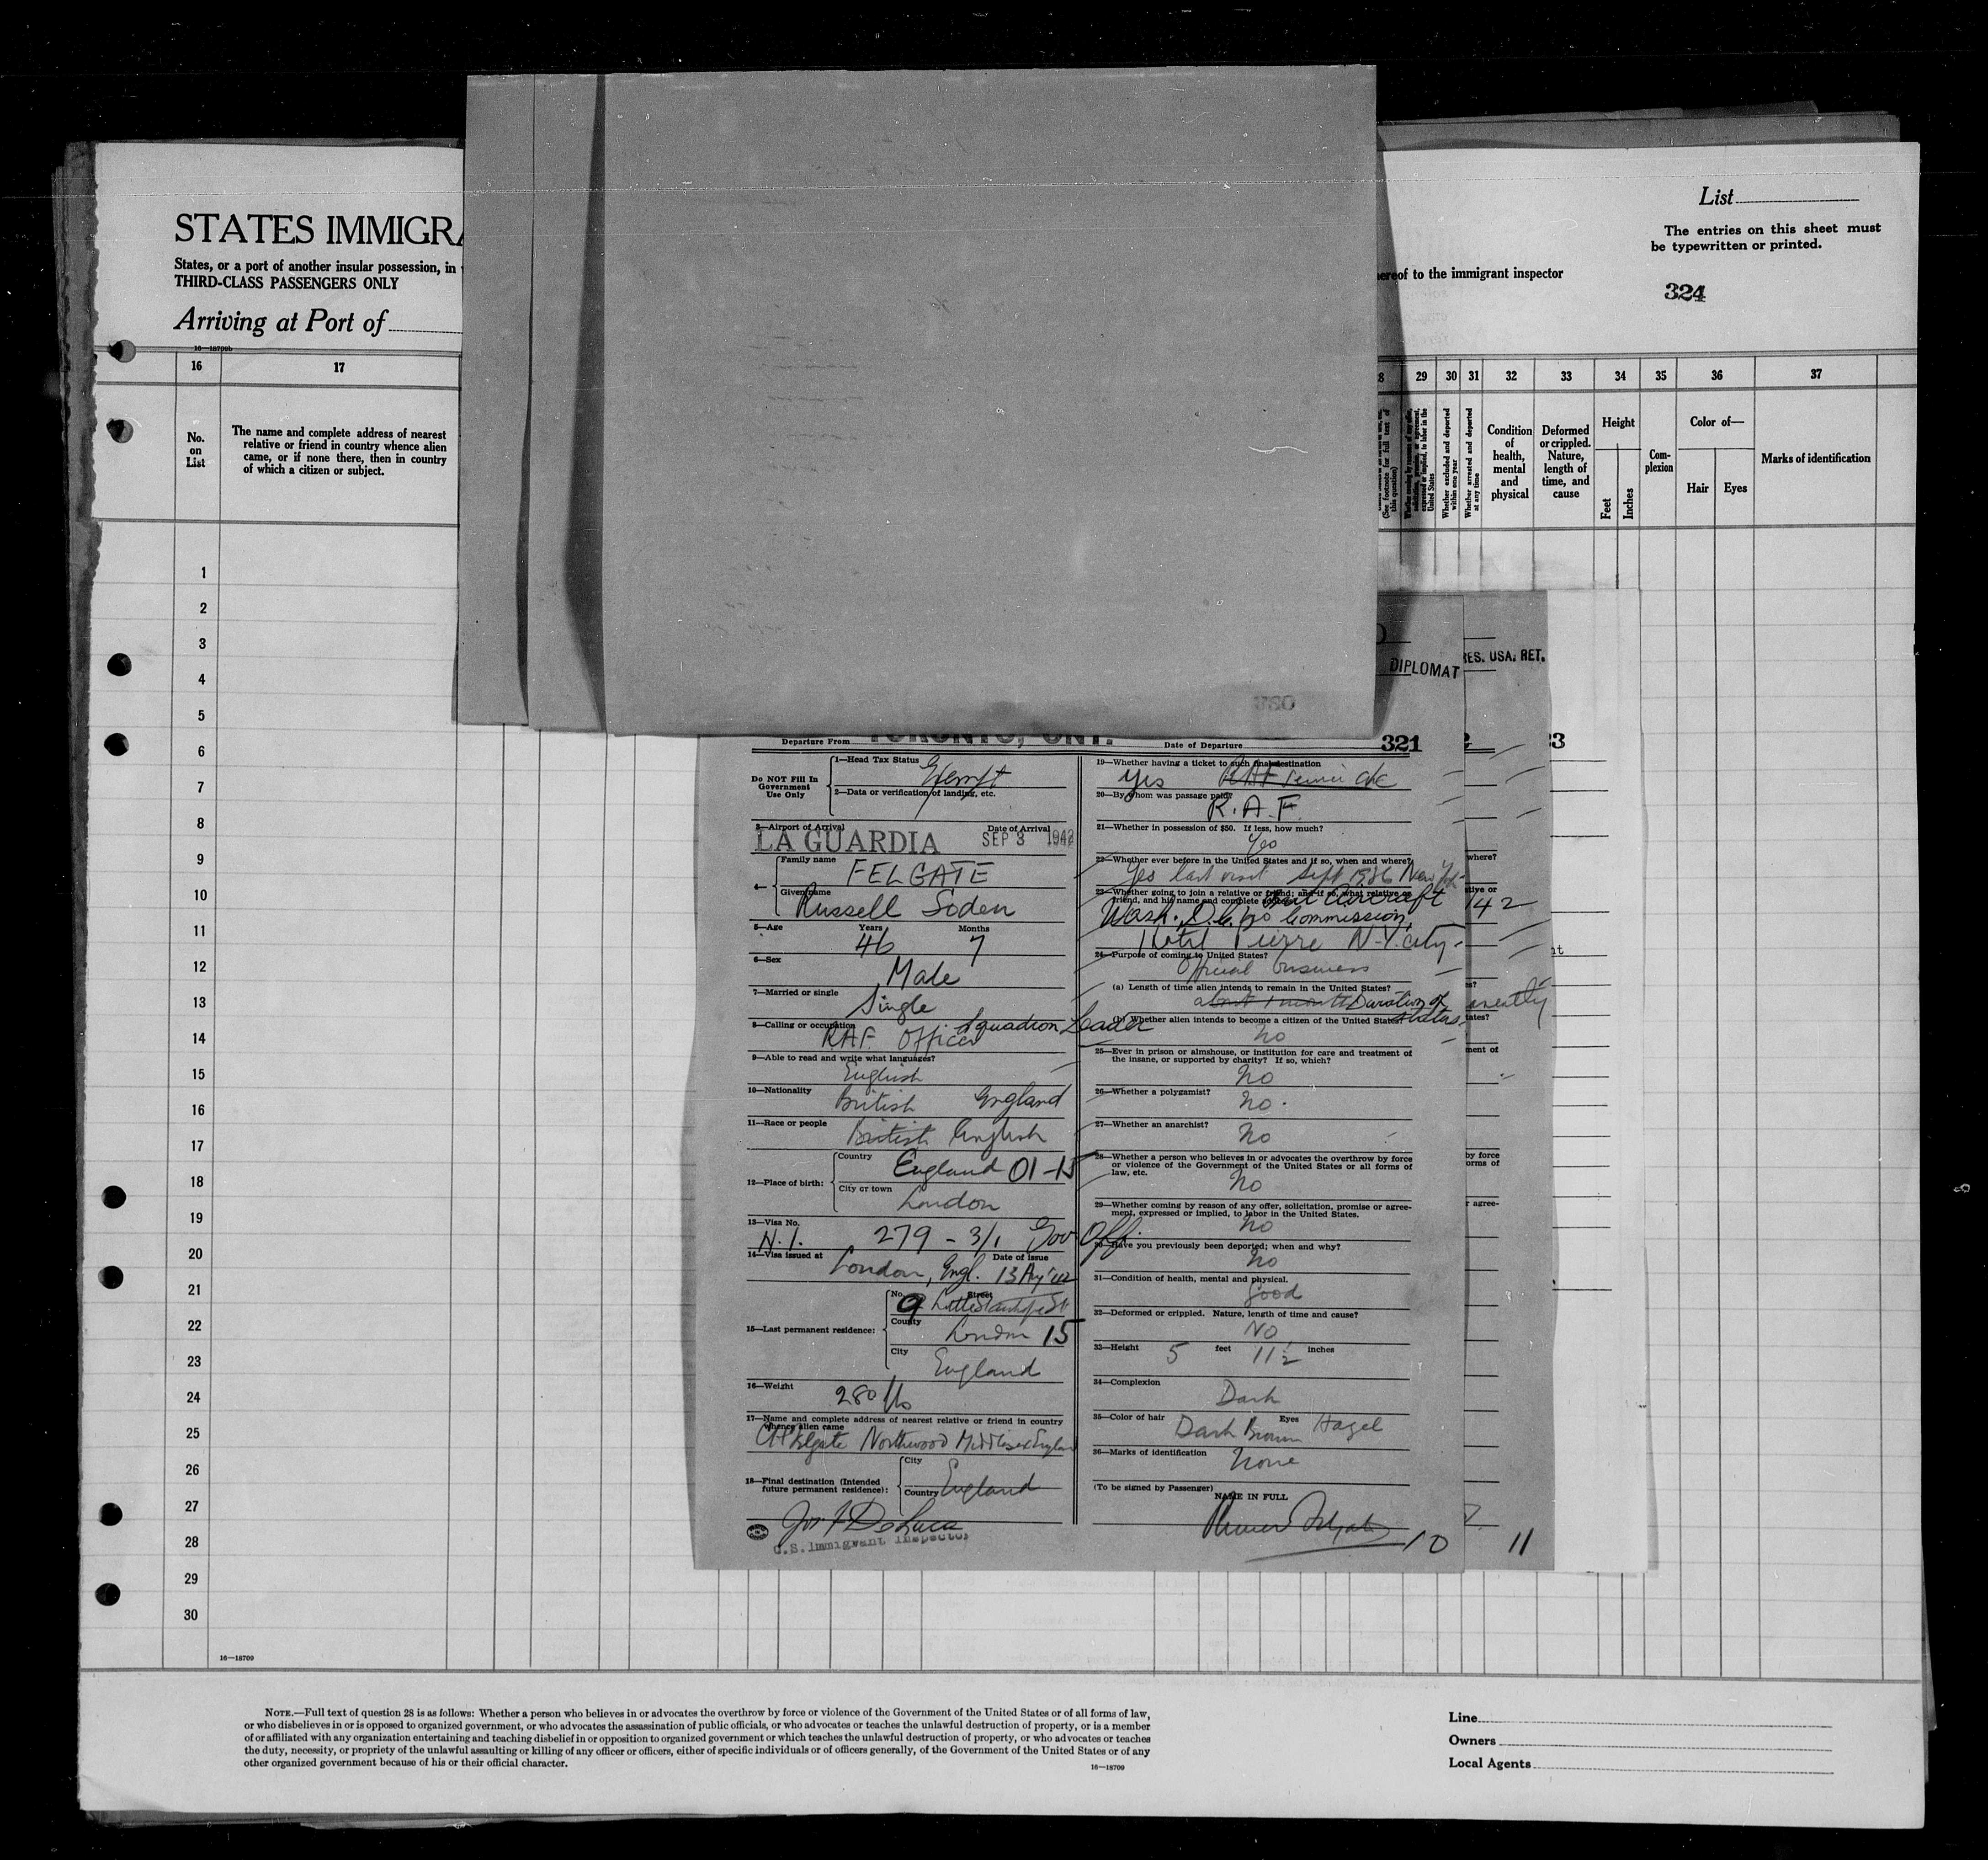 STATES IMMIGRA
States, or a port of another insular possession, in
THIRD-CLASS PASSENGERS ONLY
Arriving at Port of
16—18709b
List
The entries on this sheet must
be typewritten or printed.
hereof to the immigrant inspector
324
16 17
No.
on
List
The name and complete address of nearest
relative or friend in country whence alien
came, or if none there, then in country
of which a citizen or subject.
8 29 30 31 32 33 34 35 36 37
(See footnote for full text of
this question)
United States
Whether excluded and deported
within one year
Whether arrested and deported
at any time
Condition
of
health,
mental
and
physical
Deformed
or crippled.
Nature,
length of
time, and
cause
Height
Feet
Inches
Com-
plexion
Color of—
Hair Eyes
Marks of identification
1
2
3
4
5
6
7
8
9
10
11
12
13
14
15
16
17
18
19
20
21
22
23
24
25
26
27
28
29
30
16—18709
DIPLOMAT
RES. USA. RET.
Departure From TORONTO, ONT.
Date of Departure
321
23
Do NOT Fill In
Government
Use Only
1—Head Tax Status Exempt
2—Data or verification of landing, etc.
3—Airport of Arrival Date of Arrival
LA GUARDIA SEP 3 1942
4—
Family name
FELGATE
Given name
Russell Soden
5—Age Years Months
46 7
6—Sex
Male
7—Married or single
Single
8—Calling or occupation
RAF. Officer Squadron Leader
9—Able to read and write what languages?
English
10—Nationality
British England
11—Race or people
British English
12—Place of birth:
Country
England 01-15
City or town
London
13—Visa No.
N.I. 279 - 3/1 Gov Off.
14—Visa issued at Date of issue
London, Engl. 13 Aug '42
15—Last permanent residence:
No. Street
9 Little Stanhope St
County
London 15
City
England
16—Weight
280 lbs
17—Name and complete address of nearest relative or friend in country
whence alien came
Felgate Northwood Middlesex England
18—Final destination (Intended
future permanent residence):
City
Country England
Jos F DeLuca
U.S. Immigrant Inspector
19—Whether having a ticket to such final destination
Yes RAF
20—By whom was passage paid?
R.A.F.
21—Whether in possession of $50. If less, how much?
Yes
22—Whether ever before in the United States and if so, when and where?
Yes last visit Sept 1936 New York
23—Whether going to join a relative or friend; and if so, what relative or
friend, and his name and complete address
Brit Aircraft
Wash. D.C. Commission
Hotel Pierre N.Y. City
24—Purpose of coming to United States?
Official business
(a) Length of time alien intends to remain in the United States?
about 1 month Duration of
status
(b) Whether alien intends to become a citizen of the United States?
No
25—Ever in prison or almshouse, or institution for care and treatment of
the insane, or supported by charity? If so, which?
No
26—Whether a polygamist?
No.
27—Whether an anarchist?
No
28—Whether a person who believes in or advocates the overthrow by force
or violence of the Government of the United States or all forms of
law, etc.
No
29—Whether coming by reason of any offer, solicitation, promise or agree-
ment, expressed or implied, to labor in the United States.
No
30—Have you previously been deported; when and why?
No
31—Condition of health, mental and physical.
Good
32—Deformed or crippled. Nature, length of time and cause?
NO
33—Height 5 feet 11½ inches
34—Complexion
Dark
35—Color of hair Dark Brown Eyes Hazel
36—Marks of identification
None
(To be signed by Passenger)
NAME IN FULL
10
where?
tive or
142
ates?
ment of
by force
orms of
r agree-
11
NOTE.—Full text of question 28 is as follows: Whether a person who believes in or advocates the overthrow by force or violence of the Government of the United States or of all forms of law,
or who disbelieves in or is opposed to organized government, or who advocates the assassination of public officials, or who advocates or teaches the unlawful destruction of property, or is a member
of or affiliated with any organization entertaining and teaching disbelief in or opposition to organized government or which teaches the unlawful destruction of property, or who advocates or teaches
the duty, necessity, or propriety of the unlawful assaulting or killing of any officer or officers, either of specific individuals or of officers generally, of the Government of the United States or of any
other organized government because of his or their official character.
16—18709
Line
Owners
Local Agents